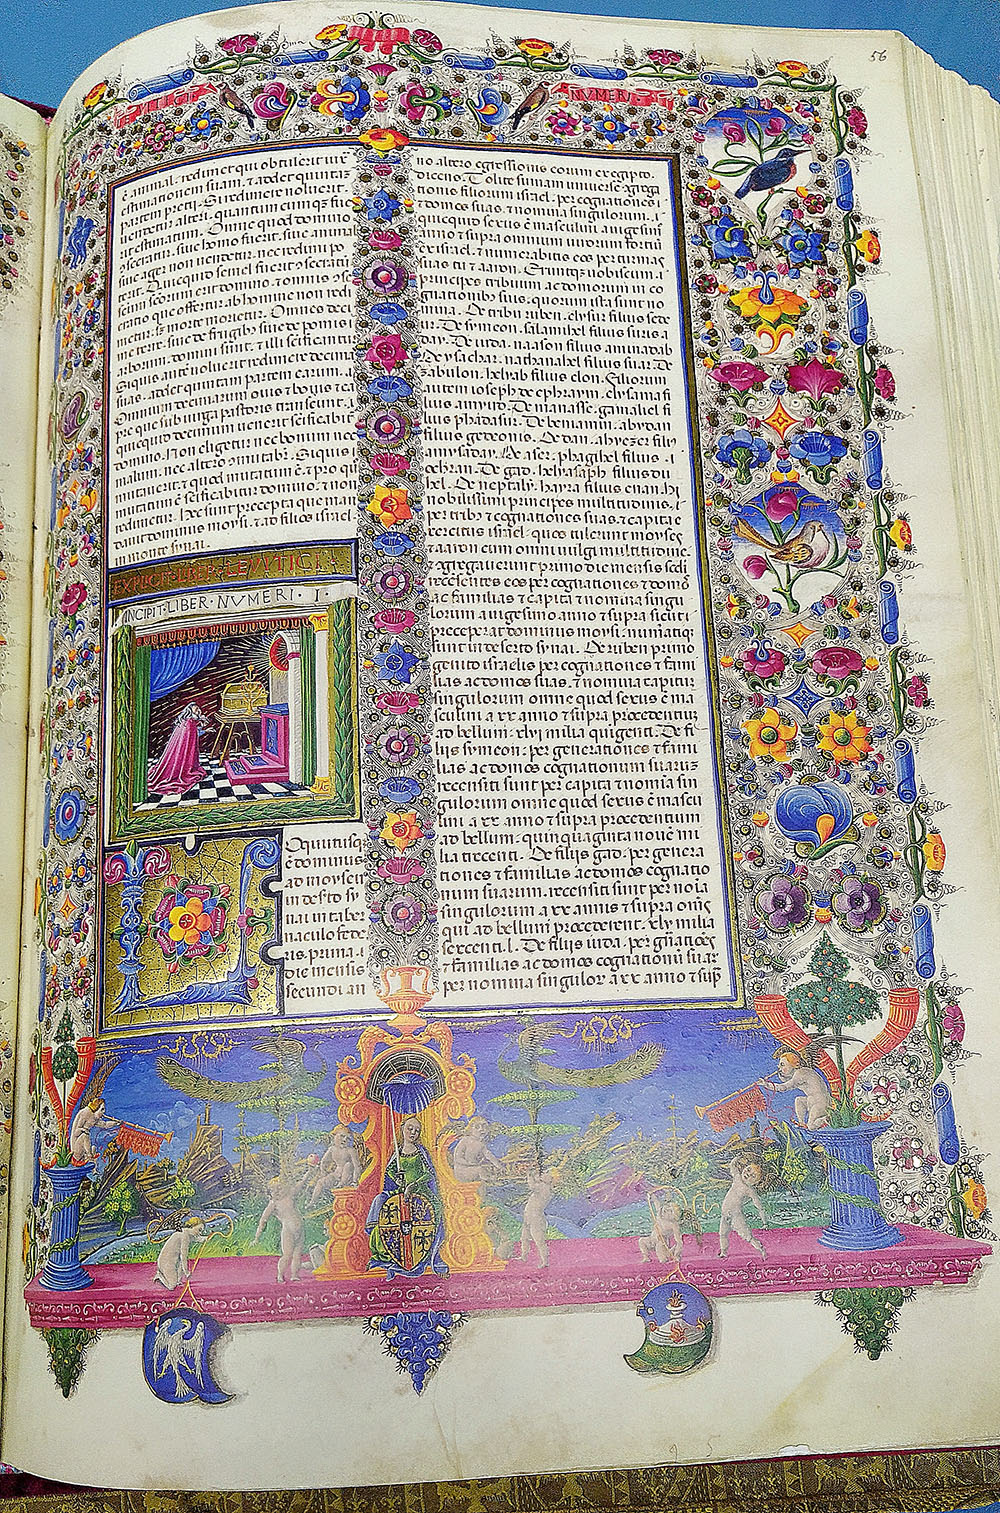 56
NVMERI
animal redimet qui obtulerit iuxͭ
estimationem suam, ⁊ addet quintaͫ
partem pretij. Si redimere noluerit
uendetur alteri, quantum cumqꝫ fuͥ
a te estimatum. Omne quod domino
siue homo fuerit, siue animal
siue ager non uendetur, nec redimi po
terit. Quicquid semel fuerit
domino
ab homine non redi
morte morietur. Omnes deci
me terre, siue de frugibꝫ siue de pomis
arborum, domini sunt, ⁊ illi
Siquis autē uoluerit redimere decimas
suas, addet quintam partem earum
Omnium decimarum ouis ⁊ bouis ⁊ ca
pre que sub uirga pastoris transeunt
quicquid decimum uenerit
domino. Non eligetur nec bonum nec
malum, nec altero Siquis
mutauerit, ⁊ quod mutatum ē, ⁊ pro quo
mutatum ē domino, ⁊ non
redimetur. Hec sunt precepta que man
dauit dominus moysi, ⁊ ad filios israel
in monte synai.
EXPLICIT·LIBER·LEVITICI
INCIPIT·LIBER·NVMERI·I·
OQuutusqꝫ
ē dominus
ad moysen
in desto sy
nai in taber
naculo fede
ris, prima
die mensis
secundi an
no altero egressionis eorum ex egipto
dicens. Tolite sumam uniuerse
tionis filiorum israel, per cognationes
⁊ domos suas, ⁊ nomina singulorum
quicquid sexus ē masculini a uigesiͫo
anno ⁊ supra omnium uirorum fortiū
ex israel, ⁊ numerabitis eos per turmas
suas tu ⁊ aaron. Eruntqꝫ uobiscum
principes tribuum ac domorum in co
gnationibꝫ suis, quorum ista sunt no
mina. De tribu ruben, elysur filius sede
ur. De symeon, salamihel filius surisa
day. De iuda, naason filius aminadab
De ysachar, nathanahel filius suar. De
zabulon, heliab filius elon. Filiorum
autem ioseph de ephraym, elysama fi
lius amyud. De manasse, gamaliel fi
lius phadasur. De beniamin, abydan
filius gedeonis. De dan, ahyezer filiꝫ
amysaday. De aser, phagihel filius
ochran. De gad, helyasaph filius du
hel. De neptaly, hayra filius enan. Hi
nobilissimi principes multitudinis
per tribꝫ ⁊ cognationes suas, ⁊ capita e
xercitus israel, quos tulerunt moyses
⁊ aaron cum omni uulgi multitudine
⁊ gregauerunt primo die mensis scdi
recensentes eos per cognationes ⁊ domos
ac familias ⁊ capita ⁊ nomina singu
lorum a uigesimo anno ⁊ supra sicut
preceperat dominus moysi. Numeratiqꝫ
sunt in deserto synai. De ruben primo
genito israelis per cognationes ⁊ fami
lias ac domos suas, ⁊ nomina capitum
singulorum omne quod sexus ē ma
sculini a xx anno ⁊ supra procedentiuꝫ
ad bellum, xlvi milia quigenti. De fi
lijs symeon, per generationes ⁊ fami
lias ac domos cognationum suaruꝫ
recensiti sunt per capita ⁊ nomina sin
gulorum omne quod sexus ē mascu
lini a xx anno ⁊ supra procedentium
ad bellum, quinquaginta nouē mi
lia trecenti. De filijs gad, per genera
tiones ⁊ familias ac domos cognatio
num suarum, recensiti sunt per noīa
singulorum a xx annis ⁊ supra om̄s
qui ad bellum procederent, xlv milia
sexcenti l. De filijs iuda, per gn̄ationes
⁊ familias ac domos cognationū suaꝝ
per nomina singulor a xx anno ⁊ supͣ